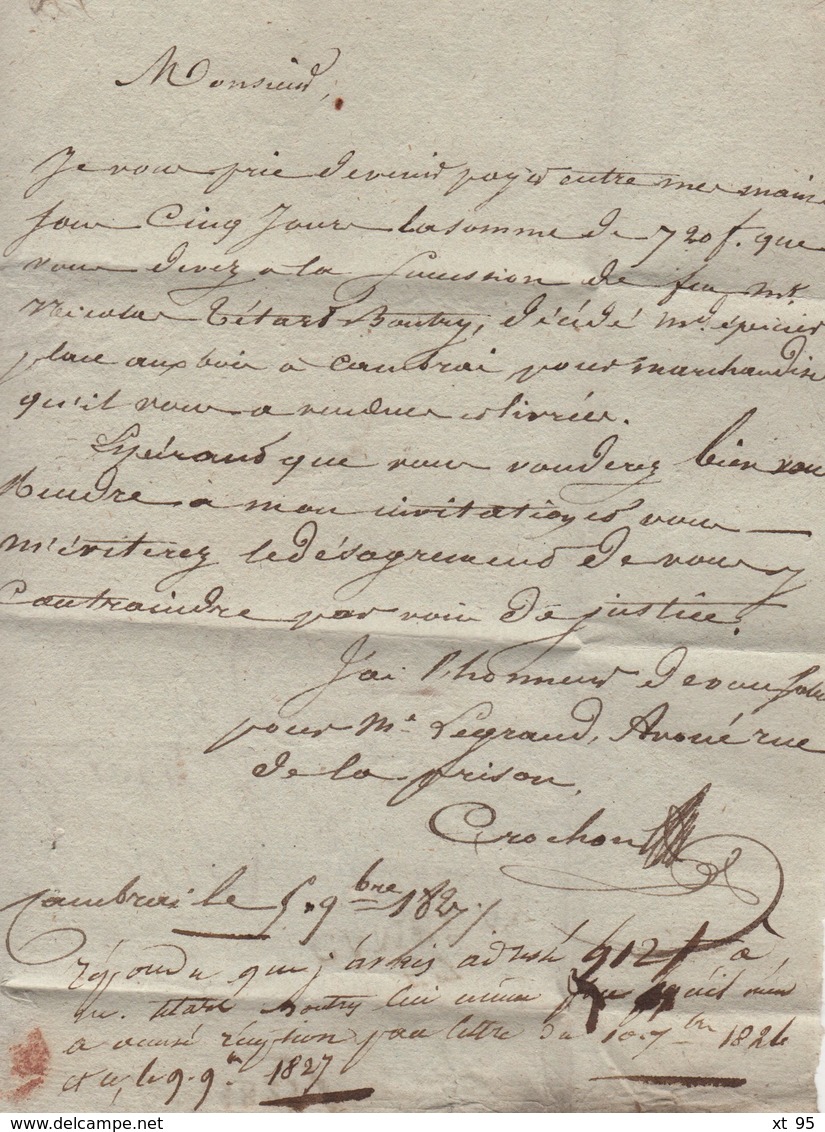 Monsieur,
Je vous prie de venir payer entre mes mains
sous Cinq Jours la somme de 720 f. que
vous devez a la sucession de feu Mr.
Nicolas Tétart Boutry, décédé Md. épicier
place aux bois a Cambrai pour marchandises
qu'il vous a vendues et livrées.
Espérant que vous vouderez bien vous
Rendre a mon invitation et vous
m'éviterez le désagrement de vous y
Contraindre par voie de justice.
J'ai l'honneur de vous saluer
pour Me Legrand, Avoué rue
de la prison,
Crochon
Cambrai le 5. 9bre 1827
Répondu que j'avais adressé 912 f a
Mr. Tétart Boutry lui même qui m'en
a accusé réception par lettre du 10. 7bre 1826
le 9. 9bre 1827
xt 95